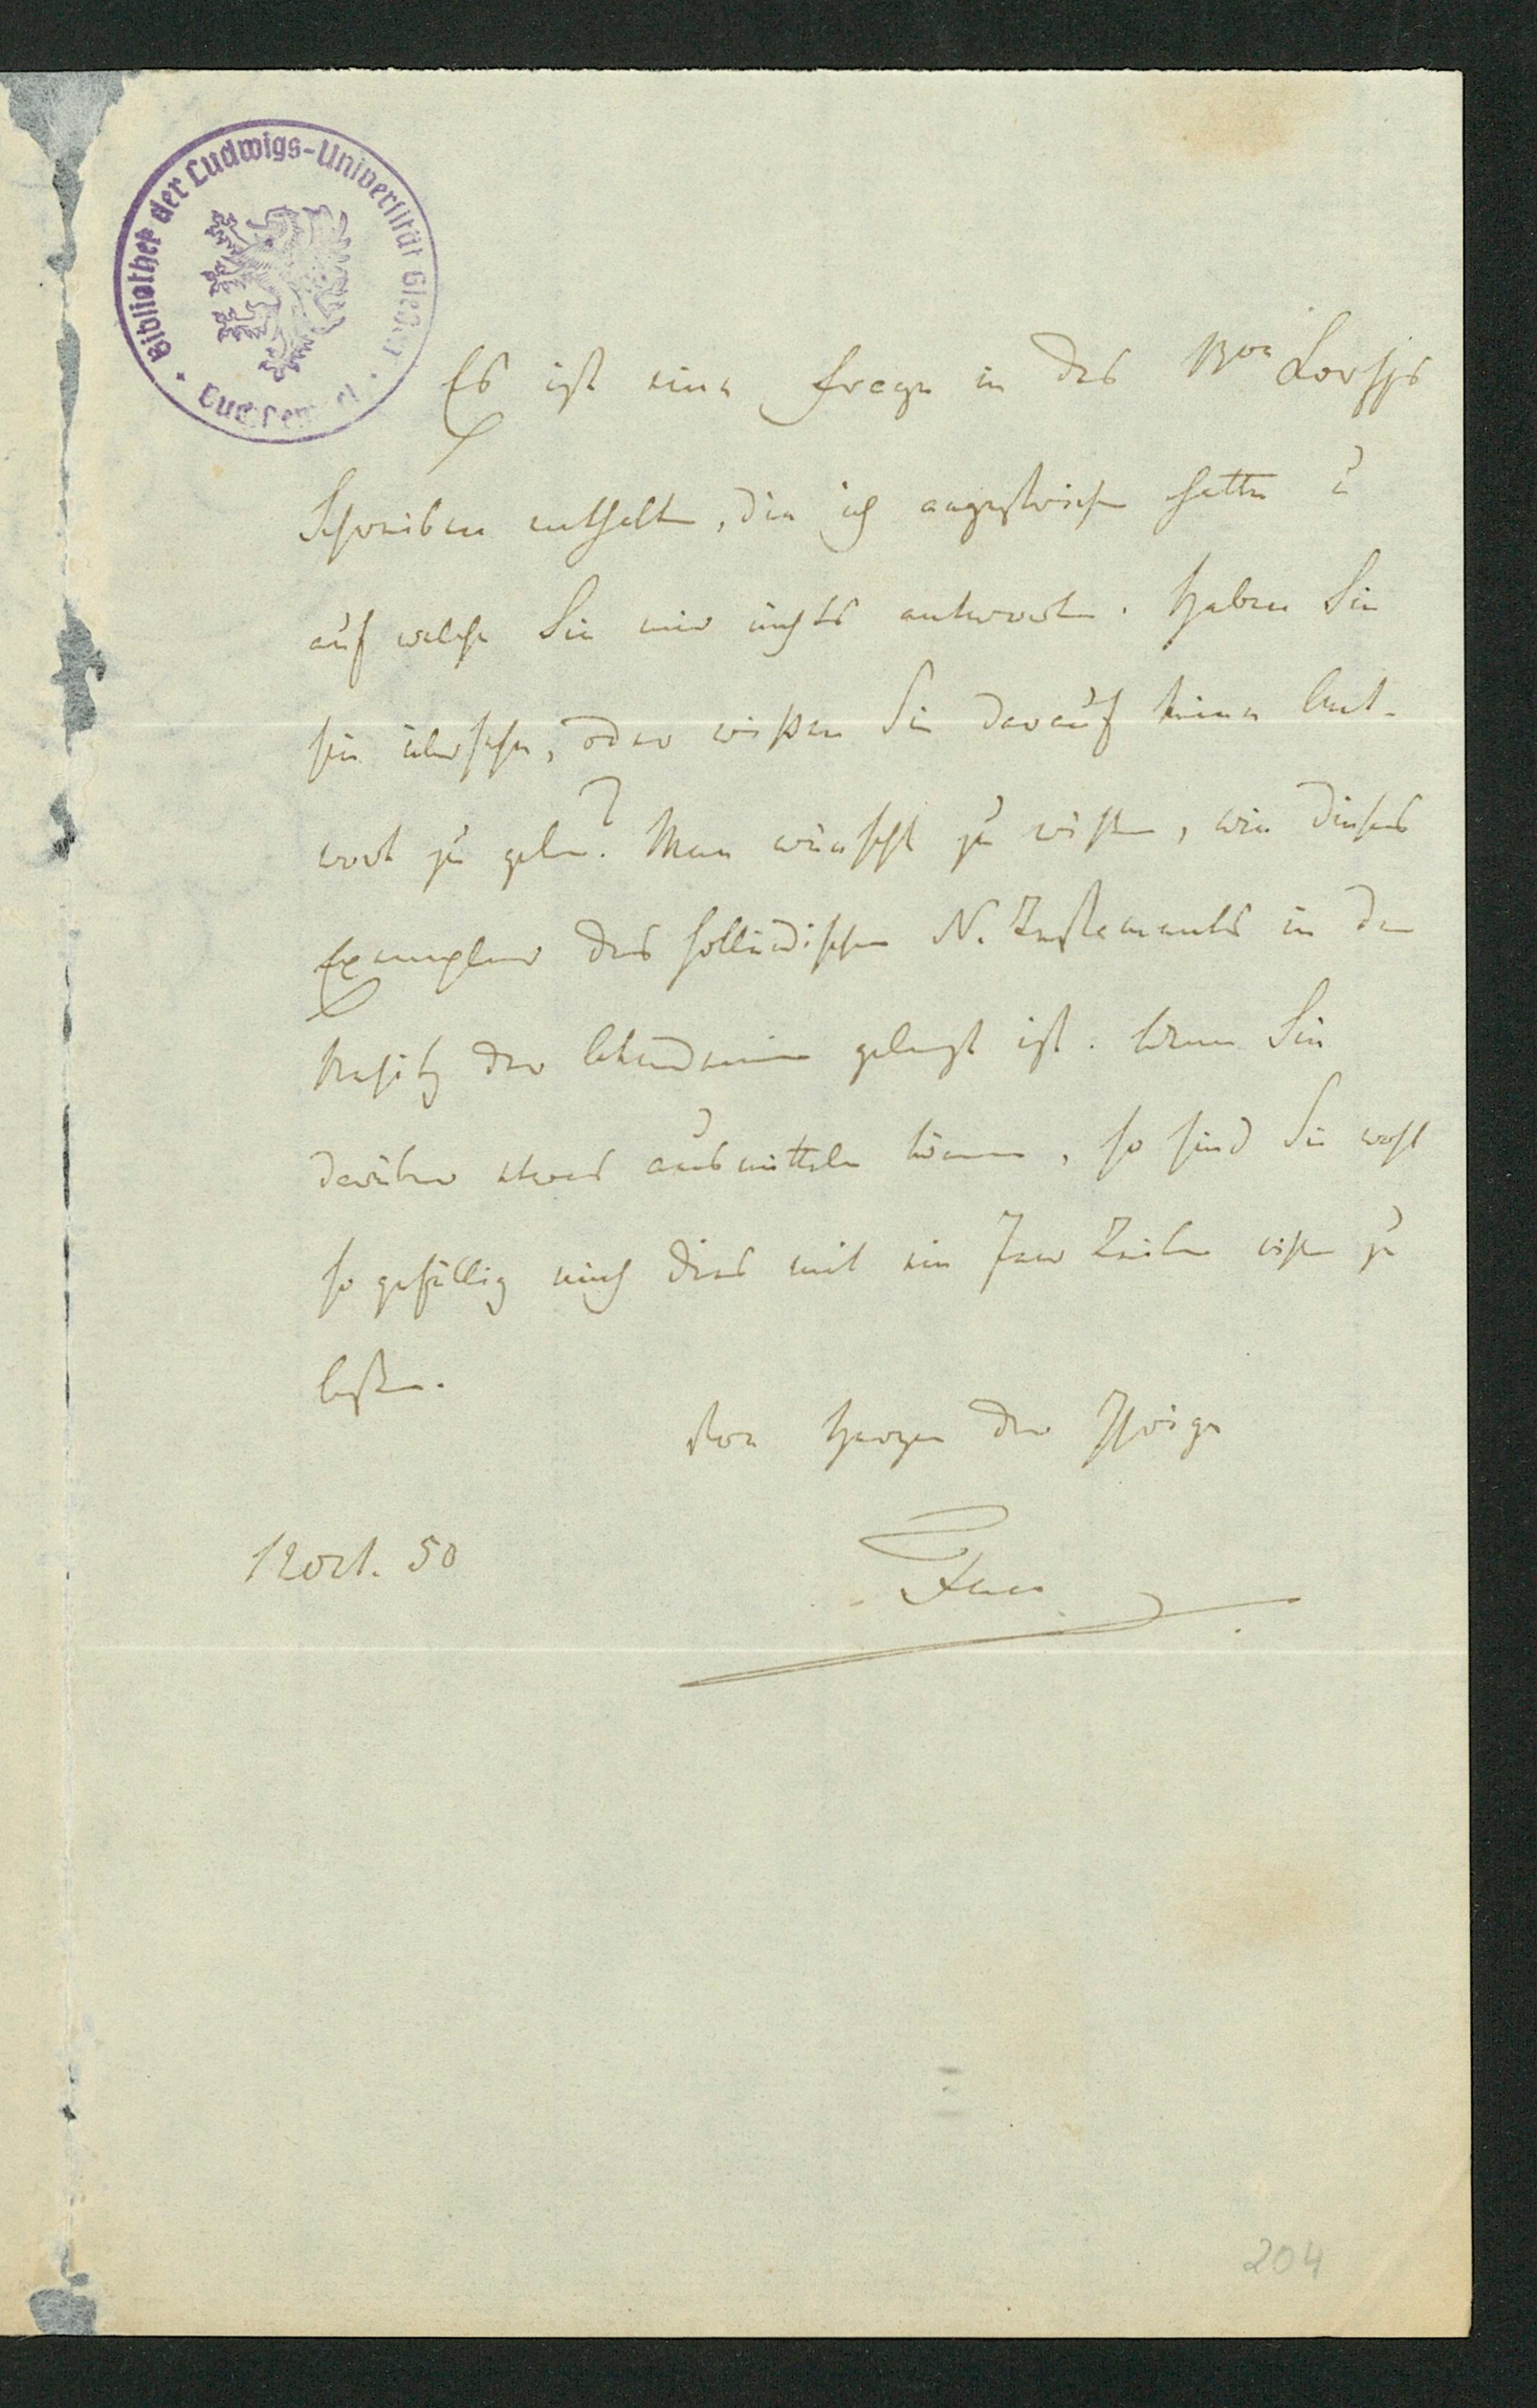 Bibliothek der Ludwigs-Universität Gießen
Es ist eine Frage in des Bon Korffs
Schreiben enthalten, die ich angestrichen hatte u
auf welche Sie mir nichts antworten. Haben Sie
sie übersehen, oder wißen Sie darauf keine Ant-
wort zu geben? Man wünscht zu wißen, wie dieses
Exemplar des holländischen N. Testaments in den
Besitz der Akademie gelangt ist. Wenn Sie
darüber etwas ausmitteln können, so sind Sie wohl
so gefällig mich dies mit ein Paar Zeilen wißen zu
laßen.
Von Herzen der Ihrige
12 Oct. 50
204